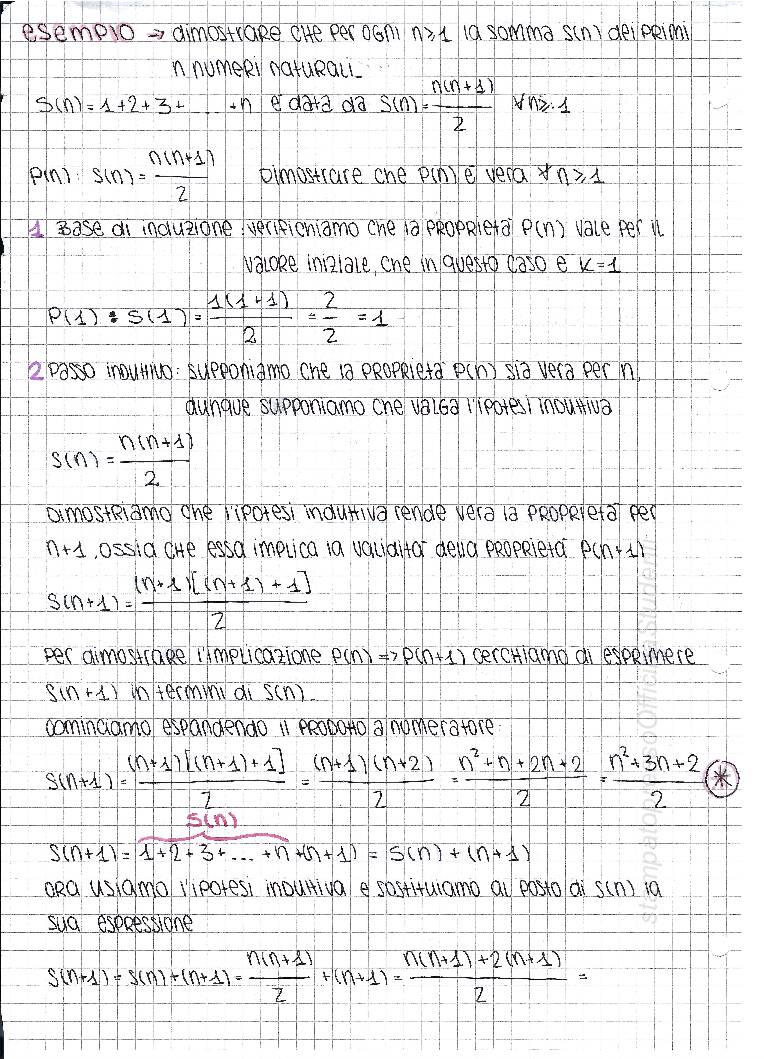 esempio → dimostrare che per ogni n≥1 la somma S(n) dei primi
n numeri naturali
S(n)=1+2+3+ ..... +n è data da S(n)= n(n+1)/2 ∀n≥1
P(n): S(n)= n(n+1)/2 Dimostrare che P(n) è vera ∀n≥1
1 Base di induzione: verifichiamo che la proprietà P(n) vale per il
valore iniziale, che in questo caso è K=1
P(1): S(1)= 1(1+1)/2 = 2/2 =1
2 Passo induttivo: supponiamo che la proprietà P(n) sia vera per n,
dunque supponiamo che valga l'ipotesi induttiva
S(n)= n(n+1)/2
Dimostriamo che l'ipotesi induttiva rende vera la proprietà per
n+1, ossia che essa implica la validità della proprietà P(n+1)
S(n+1)= (n+1)[(n+1)+1]/2
Per dimostrare l'implicazione P(n)=>P(n+1) cerchiamo di esprimere
S(n+1) in termini di S(n).
Cominciamo espandendo il prodotto a numeratore:
S(n+1)= (n+1)[(n+1)+1]/2 = (n+1)(n+2)/2 = n²+n+2n+2/2 = n²+3n+2/2 *
S(n)
S(n+1)= 1+2+3+...+n+(n+1) = S(n)+(n+1)
Ora usiamo l'ipotesi induttiva e sostituiamo al posto di S(n) la
sua espressione
S(n+1)= S(n)+(n+1)= n(n+1)/2 +(n+1)= n(n+1)+2(n+1)/2 =